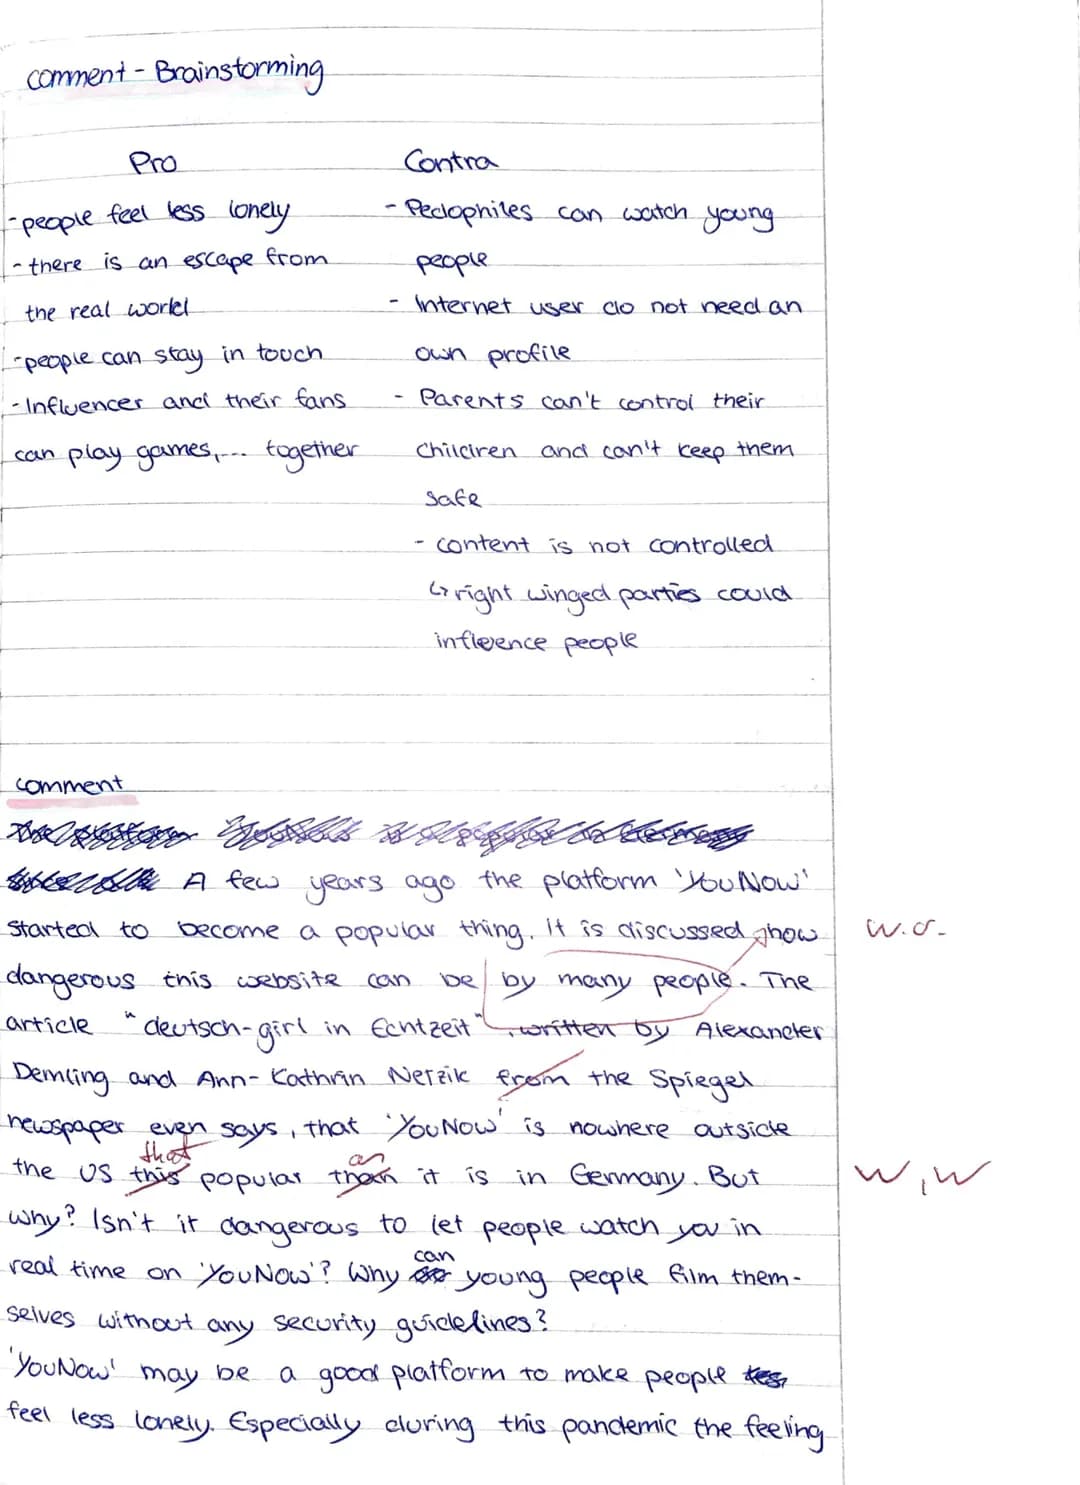 comment - Brainstorming
Pro
Contra
- people feel less lonely
- there is an escape from
the real world
- people can stay in touch
- Influencer and their fans
can play games,... together
- Pedophiles can watch young
people
- Internet user do not need an
own profile
- Parents can't control their
children and can't keep them
safe
- content is not controlled
↳ right winged parties could
influence people
comment
A few years ago the platform 'YouNow'
started to become a popular thing. It is discussed how
w.o.
dangerous this website can be by many people. The
article "deutsch-girl in Echtzeit", written by Alexander
Demling and Ann-Kathrin Nezik from the Spiegel
newspaper even says, that 'YouNow' is nowhere outside
that an
the US this popular than it is in Germany. But
W, W
why? Isn't it dangerous to let people watch you in
can
real time on 'YouNow'? Why young people film them-
selves without any security guidelines?
'YouNow' may be a good platform to make people
feel less lonely. Especially during this pandemic the feeling